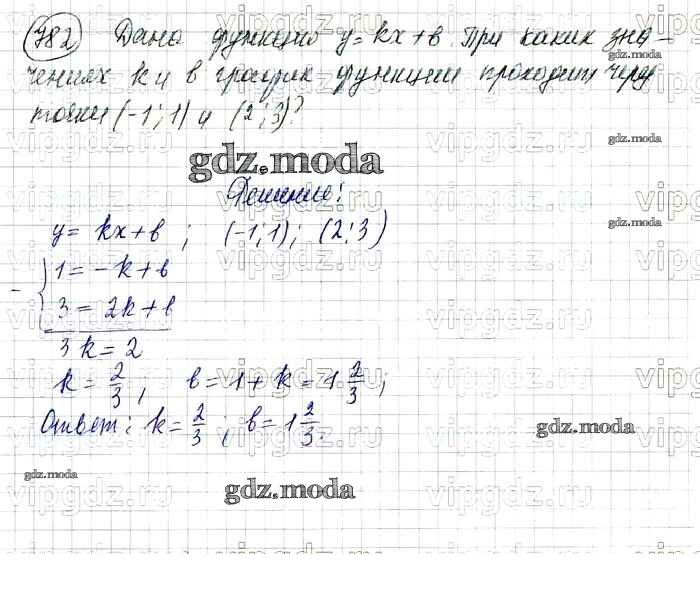 782 Дана функция y = kx + b При каких зна-
чениях k и b график функции проходит через
точки (-1; 1) и (2; 3)?
gdz.moda
Решение:
y = kx + b ; (-1; 1) ; (2; 3)
- { 1 = -k + b
3 = 2k + b
3k = 2
k = 2/3 ; b = 1 + k = 1 2/3 ;
Ответ: k = 2/3 ; b = 1 2/3.
gdz.moda
gdz.moda
gdz.moda
gdz.moda
gdz.moda
gdz.moda
vipgdz.ru